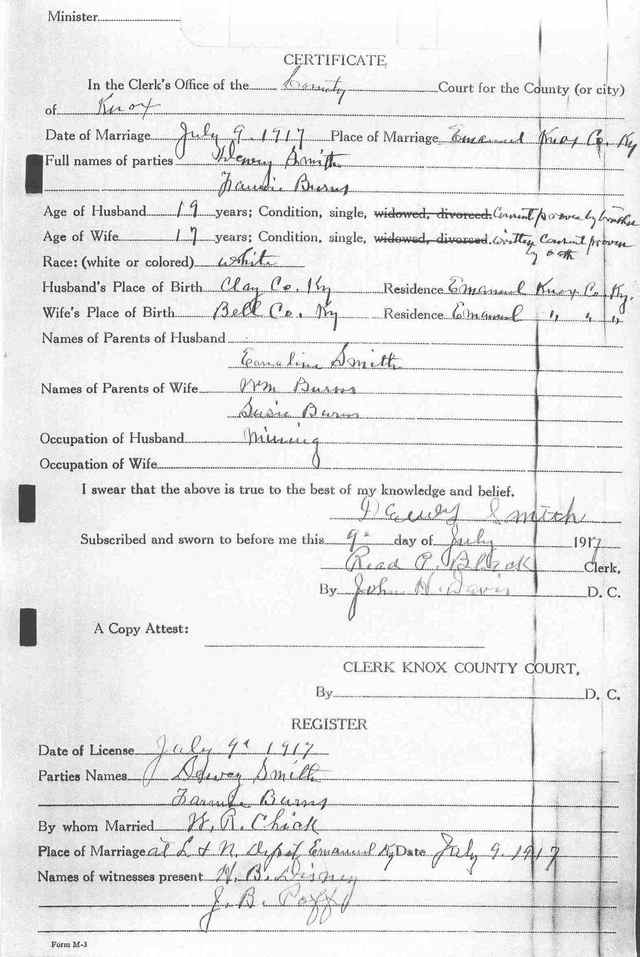 Minister
CERTIFICATE
In the Clerk's Office of the County Court for the County (or city)
of Knox
Date of Marriage July 9. 1917 Place of Marriage Emanuel Knox Co. Ky
Full names of parties Dewey Smith
Fannie Burns
Age of Husband 19 years; Condition, single, widowed, divorced. Consent proven by
Age of Wife 17 years; Condition, single, widowed, divorced. written Consent proven
by oath
Race: (white or colored) white
Husband's Place of Birth Clay Co. Ky Residence Emanuel Knox Co. Ky.
Wife's Place of Birth Bell Co. Ky Residence Emanuel " " "
Names of Parents of Husband
Smith
Names of Parents of Wife Wm Burns
Susie Burns
Occupation of Husband Mining
Occupation of Wife
I swear that the above is true to the best of my knowledge and belief.
Smith
Subscribed and sworn to before me this 9" day of July 1917
Read P. Black Clerk,
By John H. Davis D. C.
A Copy Attest:
CLERK KNOX COUNTY COURT,
By D. C.
REGISTER
Date of License July 9" 1917
Parties Names Dewey Smith
Fannie Burns
By whom Married W. R. Chick
Place of Marriage at L & N. Depot Emanuel Ky Date July 9. 1917
Names of witnesses present H. B. Disney
J. B. Poff
Form M-3